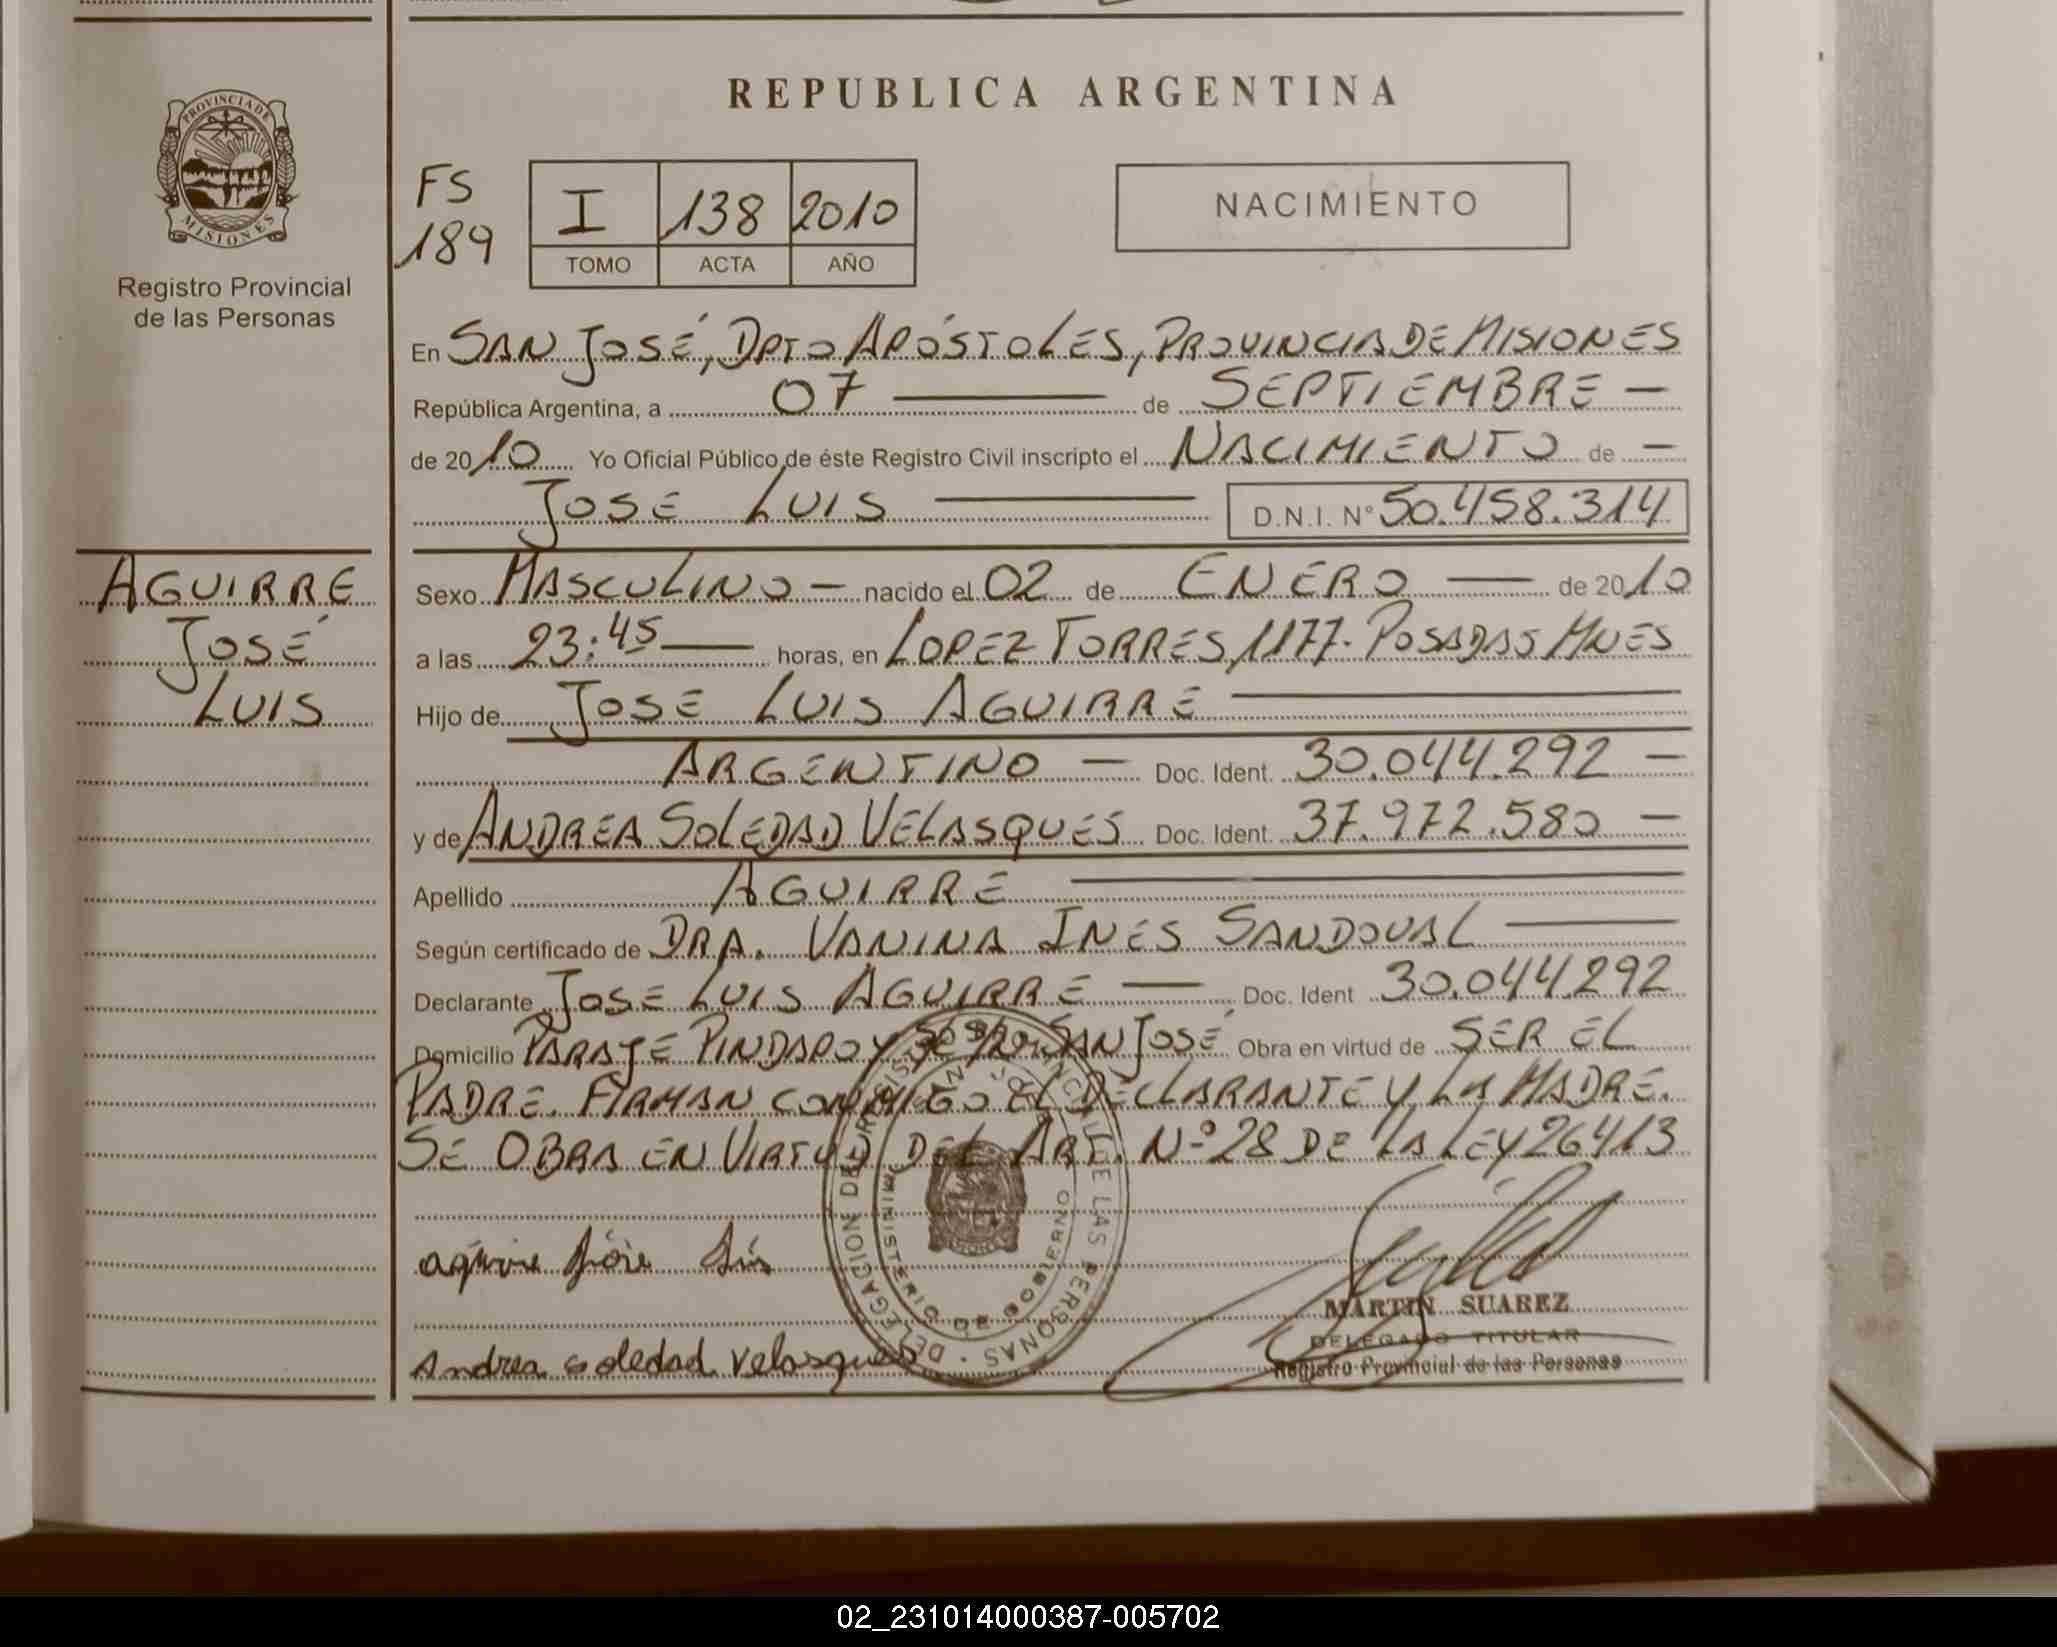 REPUBLICA ARGENTINA
PROVINCIA DE MISIONES
Registro Provincial
de las Personas
FS
189
I 138 2010
TOMO ACTA AÑO
NACIMIENTO
En SAN JOSÉ, DPTO APÓSTOLES, PROVINCIA DE MISIONES
República Argentina, a 07 de SEPTIEMBRE
de 2010 Yo Oficial Público de éste Registro Civil inscripto el NACIMIENTO de
JOSE LUIS D.N.I. N° 50.458.314
AGUIRRE
JOSÉ
LUIS
Sexo MASCULINO nacido el 02 de ENERO de 2010
a las 23:45 horas, en LOPEZ TORRES 1177. POSADAS MNES
Hijo de JOSE LUIS AGUIRRE
ARGENTINO Doc. Ident. 30.044.292
y de ANDREA SOLEDAD VELASQUES Doc. Ident. 37.972.580
Apellido AGUIRRE
Según certificado de DRA. VANINA INES SANDOVAL
Declarante JOSE LUIS AGUIRRE Doc. Ident 30.044.292
Domicilio PARAJE PINDAPOY SAN JOSÉ Obra en virtud de SER EL
PADRE. FIRMAN CONMIGO EL DECLARANTE Y LA MADRE.
SE OBRA EN VIRTUD DEL ART. N° 28 DE LA LEY 26413
DELEGACION DEL REGISTRO PROVINCIAL DE LAS PERSONAS
MINISTERIO DE GOBIERNO
Andrea Soledad Velasques
MARTIN SUAREZ
DELEGADO TITULAR
Registro Provincial de las Personas
02_231014000387-005702